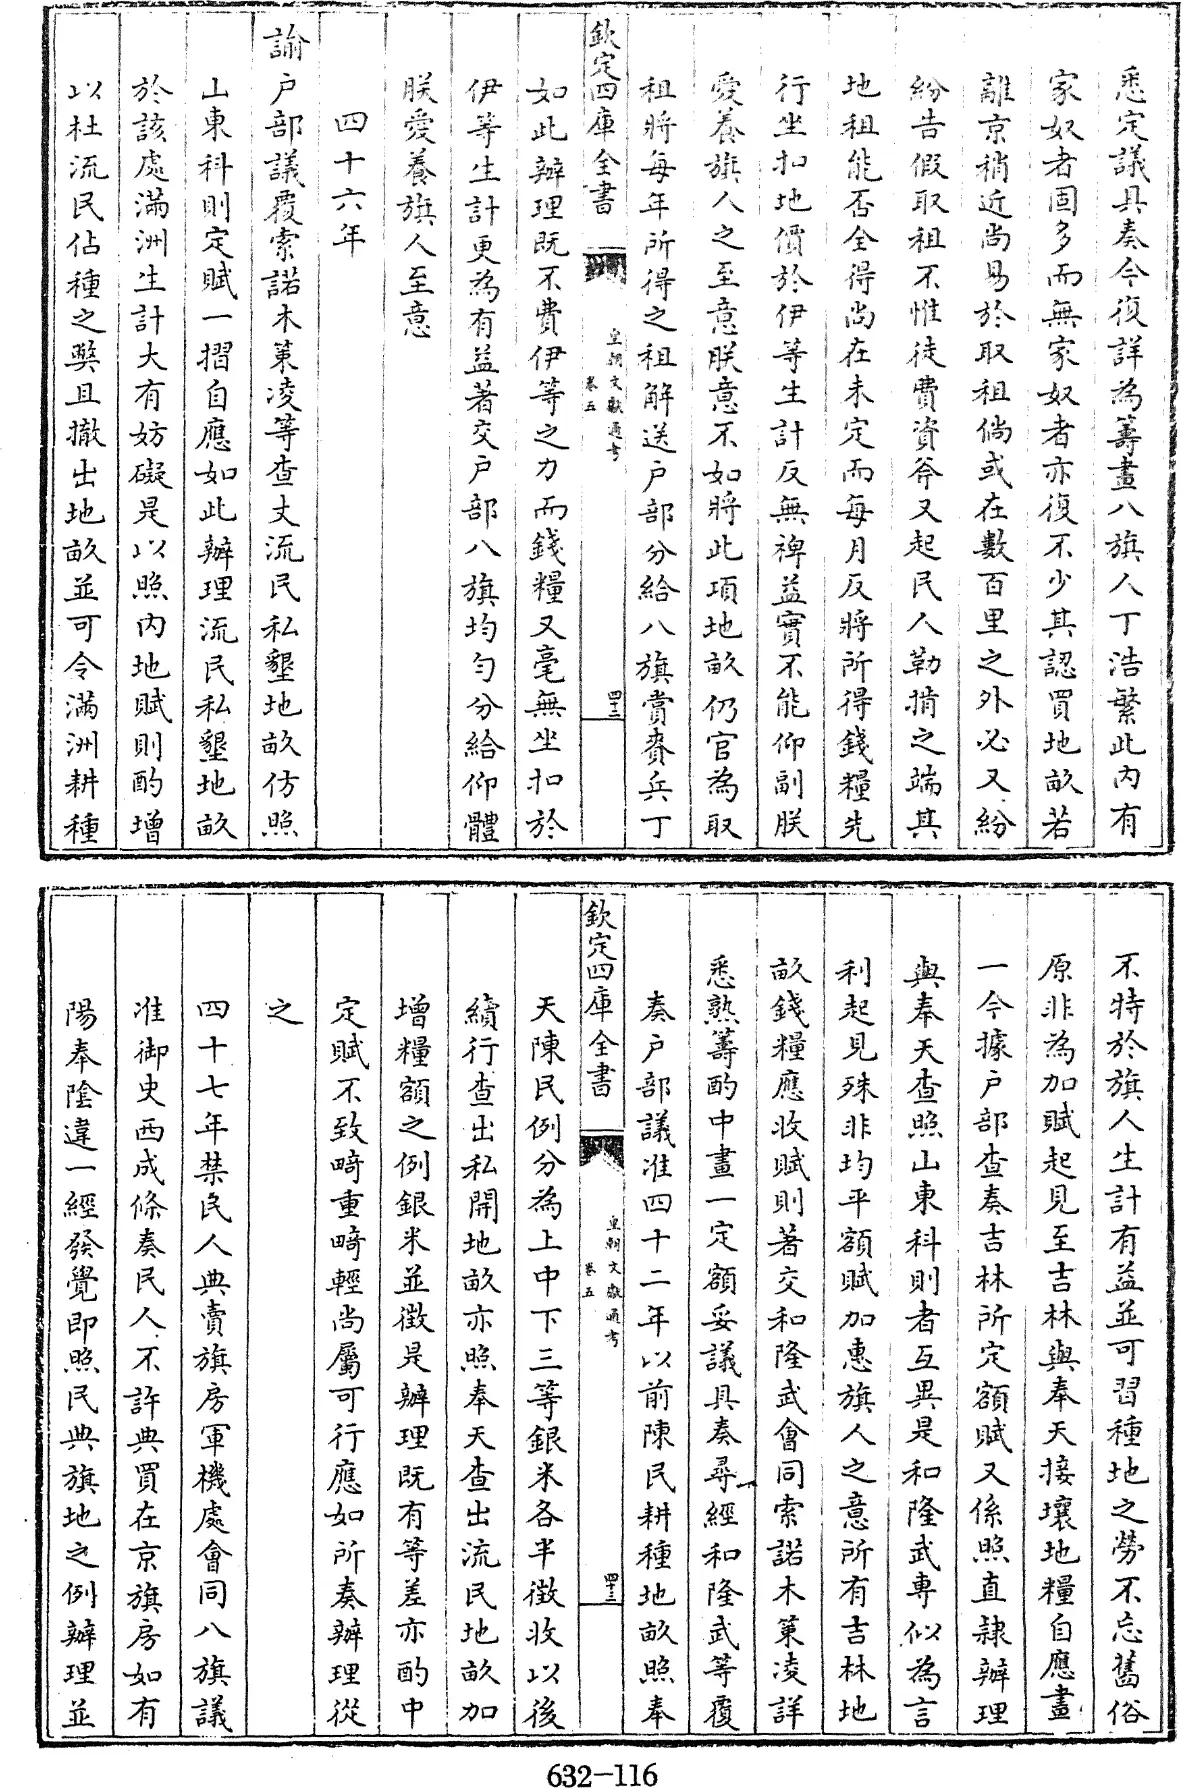 悉定議具奏今復詳為籌畫八旗人丁浩繁此内有
家奴者固多而無家奴者亦復不少其認買地畝若
離京稍近尚易於取租倘或在數百里之外必又紛
紛告假取租不惟徒費資斧又起民人勒掯之端其
地租能否全得尚在未定而每月反將所得錢糧先
行坐扣地價於伊等生計反無裨益實不能仰副朕
愛養旗人之至意朕意不如將此項地畝仍官為取
租將每年所得之租解送户部分給八旗賞賚兵丁
欽定四庫全書
皇朝文獻通考
卷五
四十二
如此辦理既不費伊等之力而錢糧又毫無坐扣於
伊等生計更為有益著交户部八旗均勻分給仰體
朕愛養旗人至意
四十六年
諭户部議覆索諾木䇿凌等查丈流民私墾地畝仿照
山東科則定賦一摺自應如此辦理流民私墾地畝
於該處滿洲生計大有妨礙是以照内地賦則酌增
以杜流民佔種之獘且撤出地畝並可令滿洲耕種
不特於旗人生計有益並可習種地之勞不忘舊俗
原非為加賦起見至吉林與奉天接壤地糧自應畫
一今據户部查奏吉林所定額賦又係照直隸辦理
與奉天查照山東科則者互異是和隆武專似為言
利起見殊非均平額賦加惠旗人之意所有吉林地
畝錢糧應收賦則著交和隆武會同索諾木䇿凌詳
悉熟籌酌中畫一定額妥議具奏尋經和隆武等覆
奏户部議准四十二年以前陳民耕種地畝照奉
欽定四庫全書
皇朝文獻通考
卷五
四十三
天陳民例分為上中下三等銀米各半徵收以後
續行查出私開地畝亦照奉天查出流民地畝加
增糧額之例銀米並徵是辦理既有等差亦酌中
定賦不致畸重畸輕尚屬可行應如所奏辦理從
之
四十七年禁民人典賣旗房軍機處會同八旗議
准御史西成條奏民人不許典買在京旗房如有
陽奉陰違一經發覺即照民典旗地之例辦理並
632-116